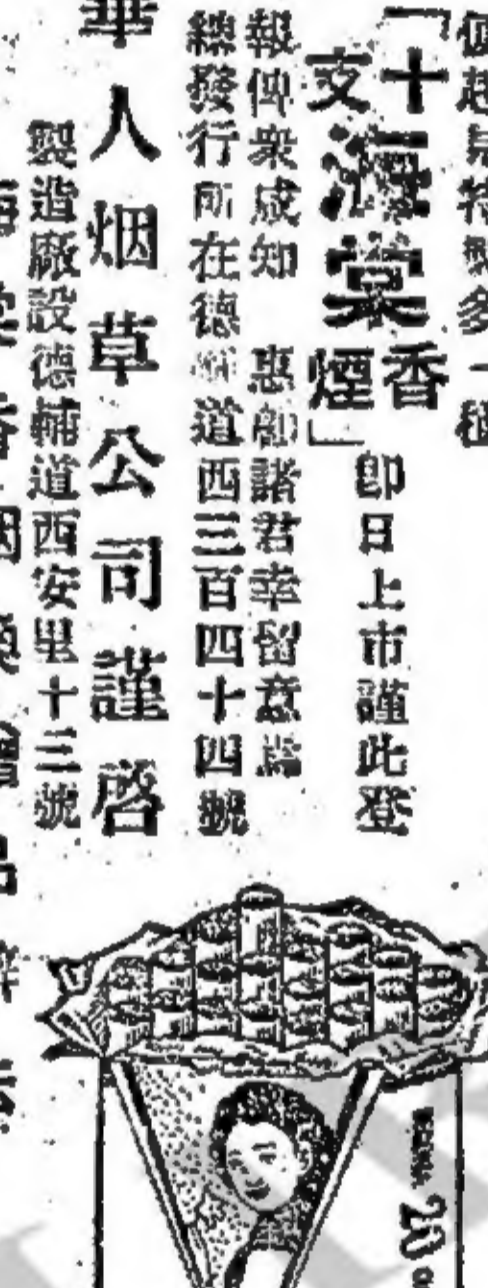 起見特製多一種
「十支海棠香煙」即日上市謹此登
報俾衆咸知 惠顧諸君幸留意焉
總發行所在德輔道西三百四十四號
華人烟草公司謹啓
製造廠設德輔道西安里十三號
20